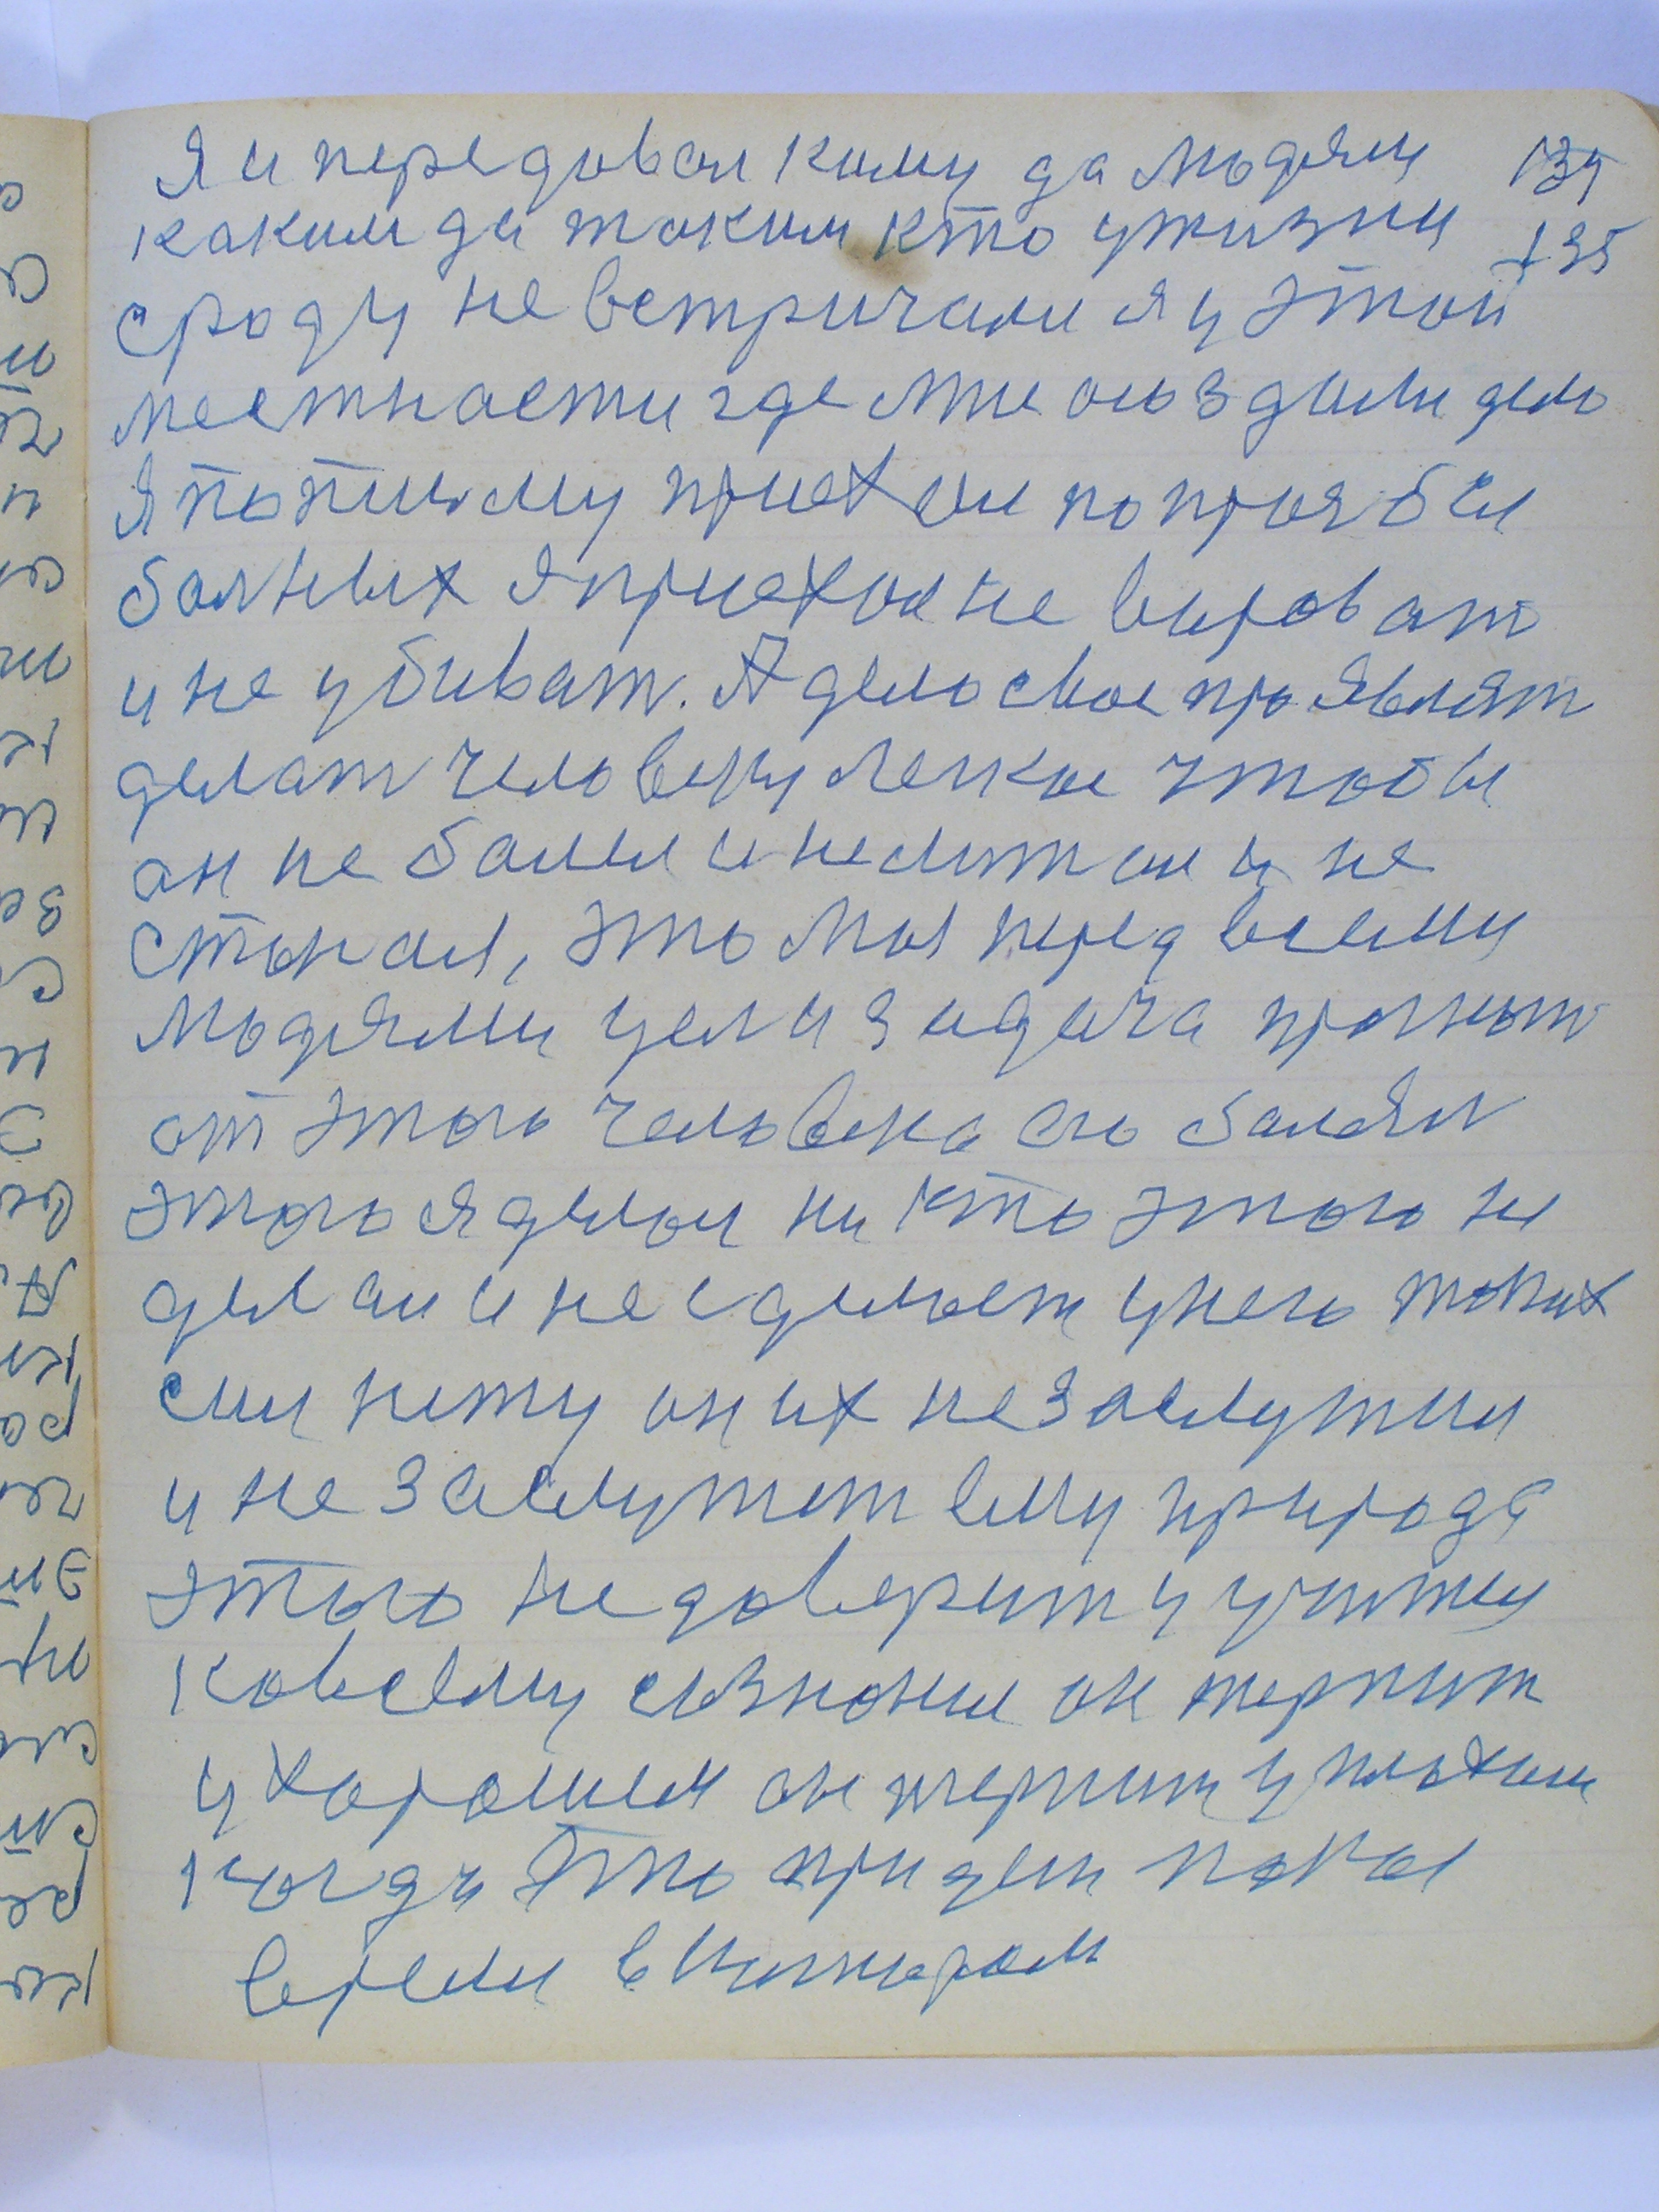 Я и передовал кому да людями 134
каким да таким кто ужизни 135
сроду не встричали я у этой
местности где мне создали дело
Я по письму приехал попрозбе
больных я приехал не вироват
и не убиват. А дело свое проявлят
делат человеку легкое чтобы
он не болел и не и не
стонал, это моя перед всеми
людями цел и задача прогнат
от этого человека его болязн
этого я делал ни кто этого не
делал и не сделает унего таких
сил нету он их не заслужил
и не заслужит ему природа
этого не доверит у
ковсему сазнание он терпит
у хорошем он терпит у плохом
когда это придет такое
время в котором